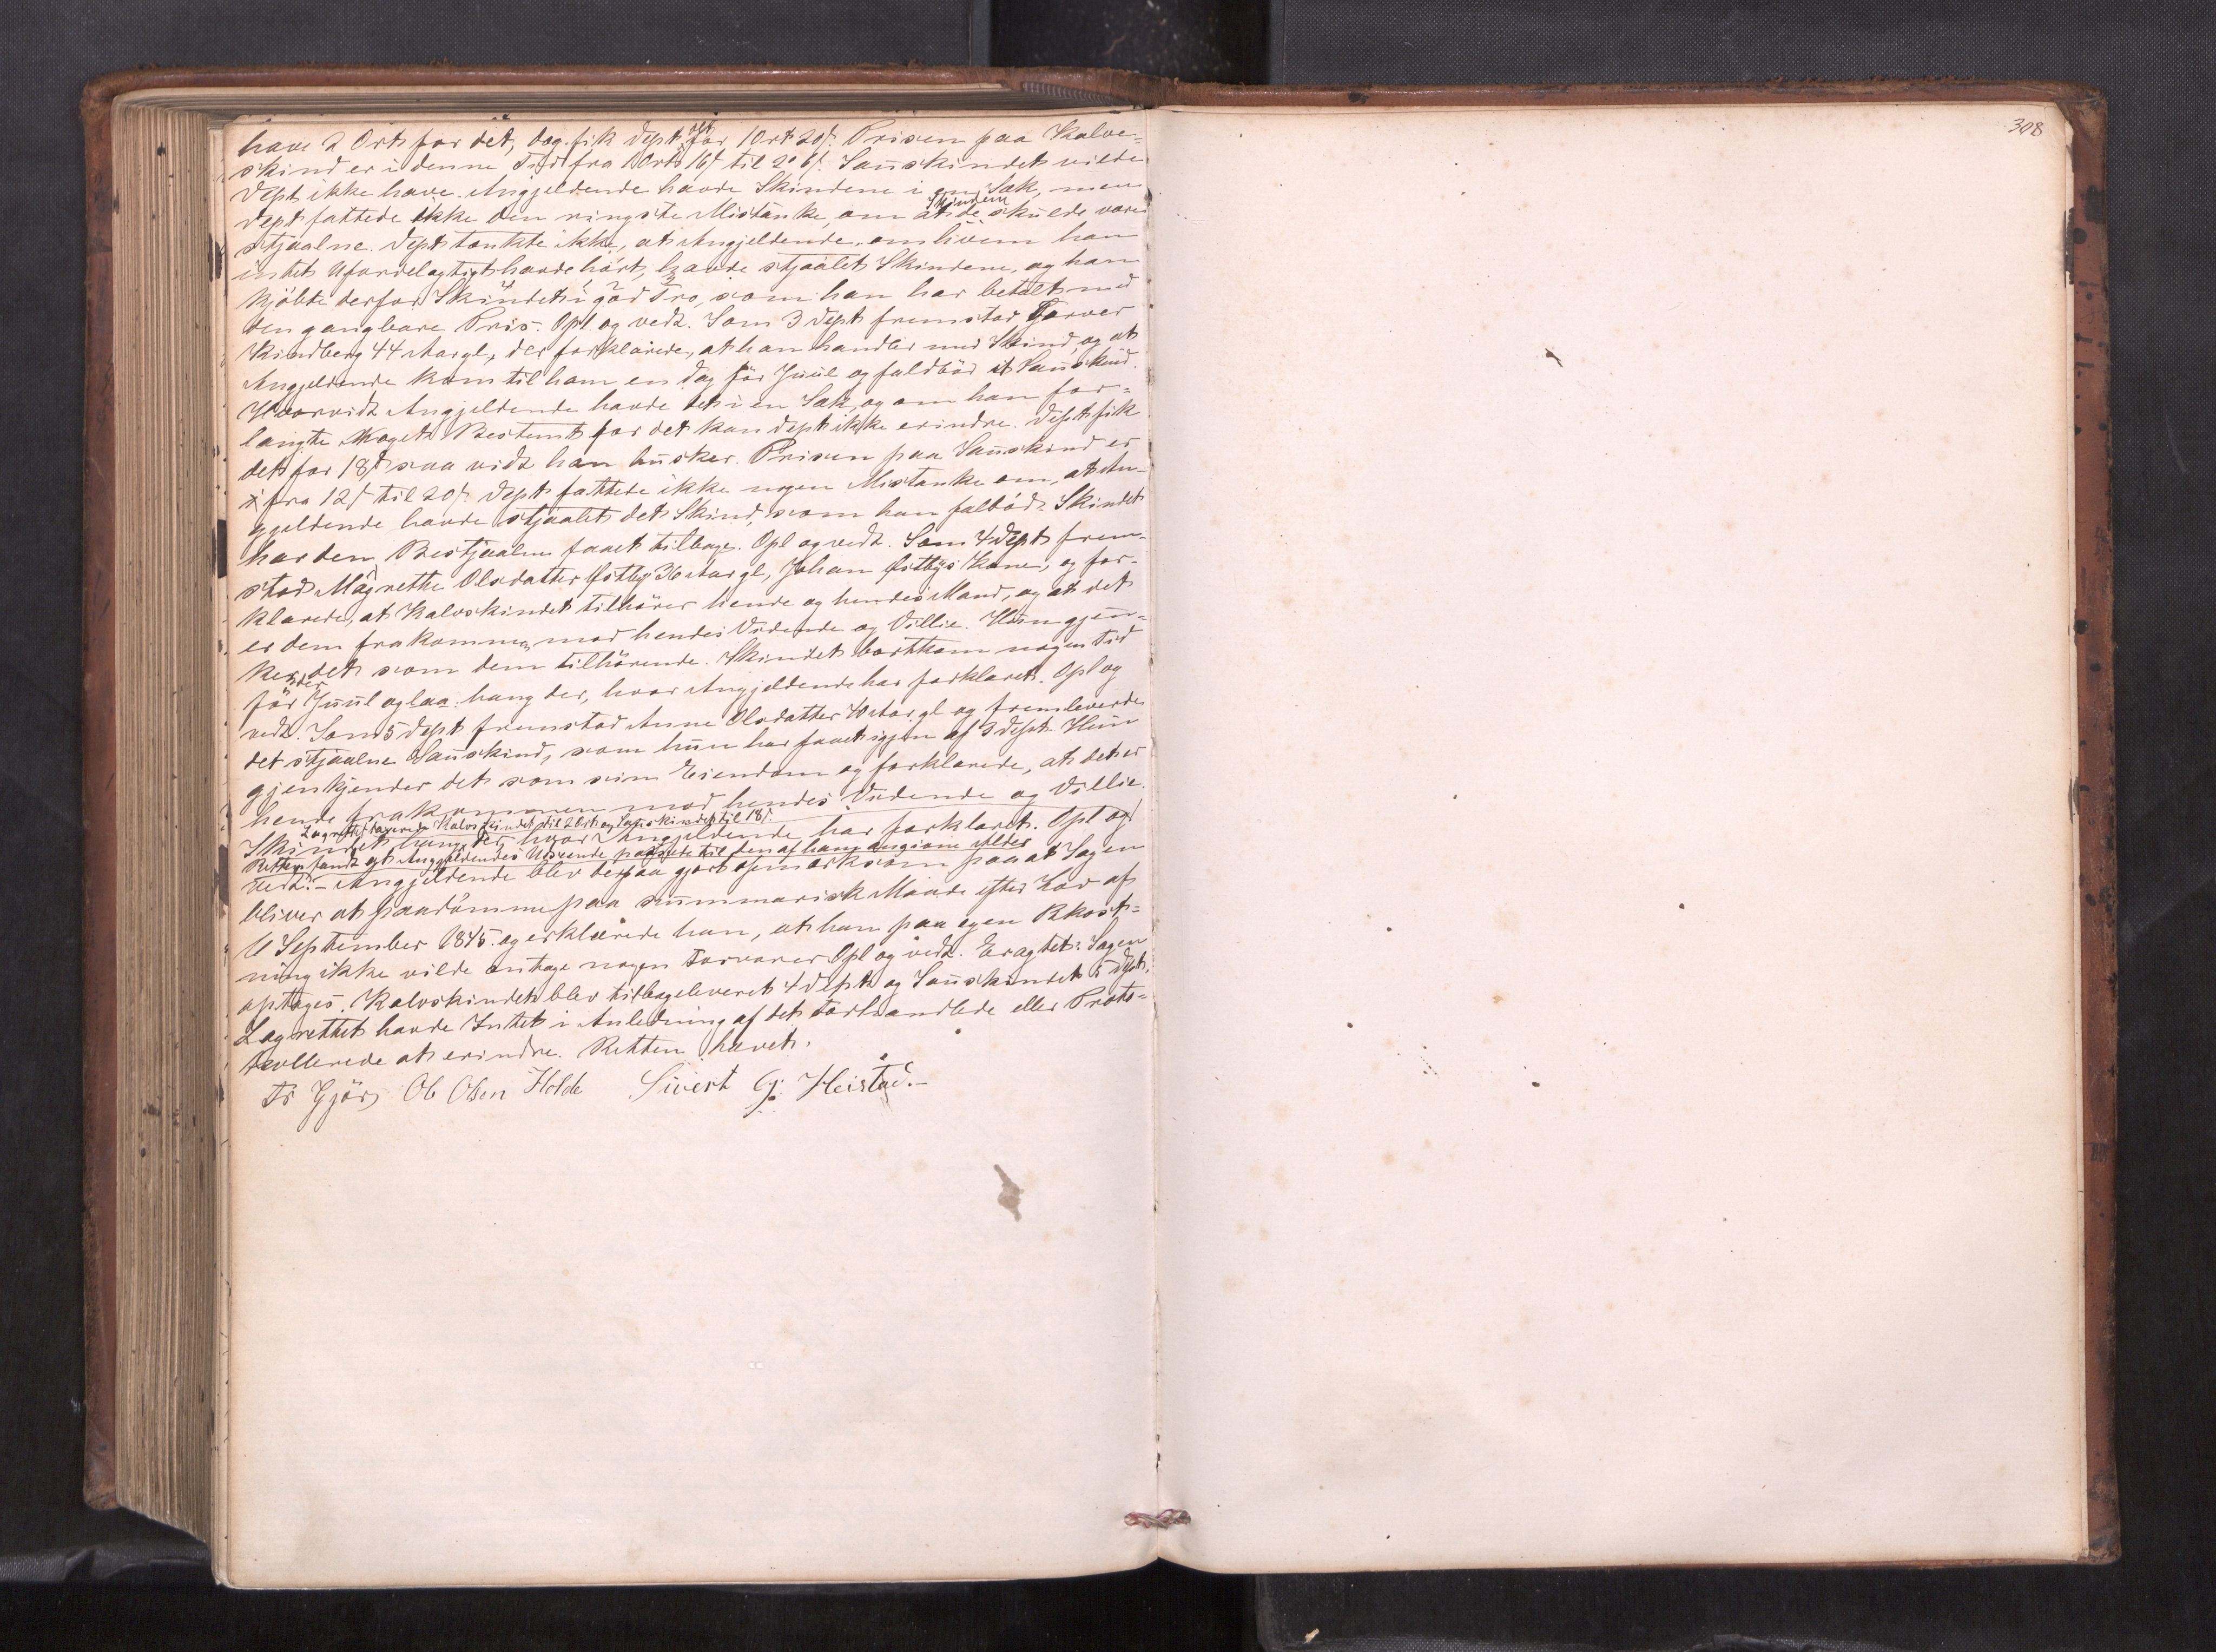 have 2 Ort for det, dog fik Dept. det for 1 Ort 20 s. Prisen paa Kalve-
skind er i denne Tid fra 1 Ort 16 s til 2 " 6 s. Sauskindet vilde
Dept ikke have. Angjeldende havde Skindene i en Sæk, men
Dept fattede ikke den ringeste Mistanke, om at de Skindene skulde være
stjaalne. Dept tænkte ikke, at Angjeldende, om hvem han
intet Ufordelagtigt havde hört, havde stjaalet Skindene, og han
kjöbte derfor Skindet i god Tro, som han har betalt med
den gangbare Pris. Opl. og vedt. Som 3 Dept fremstod Garver
Kindberg 44 Aar gl, der forklarede, at han handler med Skind, og at
Angjeldende kom til ham en Dag för Juul og faldböd et Sauskind.
Hvorvidt Angjeldende havde det i en Sæk, og om han for-
langte Noget Bestemt for det kan Dept ikke erindre. Dept fik
det for 18 s saa vidt han husker. Prisen paa Sauskind er
fra 12 s til 20 s. Dept fattede ikke nogen Mistanke om, at An-
gjeldende havde stjaalet det Skind, som han falböd. Skindet
har den Bestjaalne faaet tilbage. Opl og vedt. Som 4 Dept frem-
stod Magrethe Olsdatter Østby 36 Aar gl, Johan Østbys Kone, og for-
klarede, at Kalvskindet tilhörer hende og hendes Mand, og at det
er dem frakommen mod hendes Vidende og Villie. Hun gjen-
kjender det som dem tilhörende. Skindet bortkom nogen Tid
för Juul og laa hang der, hvor Angjeldende har forklaret. Opl og
vedt. Som 5 Dept fremstod Anne Olsdatter 40 Aar gl og fremleverede
det stjaalne Sauskind, som hun har faaet igjen af 3 Dept. Hun
gjenkjender det som sin Eiendom og forklarede, at det er
hende frakommen mod hendes Vidende og Villie.
Lagrettet taxerede Kalvskindet til 2 Ort og Sauskindet til 18 s.
Skindet hang der, hvor Angjeldende har forklaret. Opl og
Retten fandt at Angjeldendes Udseende passede til den af ham angivne Alder
vedt. – Angjeldende blev derpaa gjort opmærksom paa at Sagen
bliver at paadömme paa summarisk Maade efter Lov af
6 September 1845. og erklærede han, at han paa egen Bkost-
ning ikke vilde antage nogen Forsvarer Opl og vedt. Eragtet: Sagen
optages. Kalvskindet blev tilbageleveret 4 Dept og Sauskindet 5 Dept.
Lagrettet havde Intet i Anledning af det Forhandlede eller Proto-
kollerede at erindre. Retten hævet.
Ole Olsen Holde Sivert G: Heistad. –
308